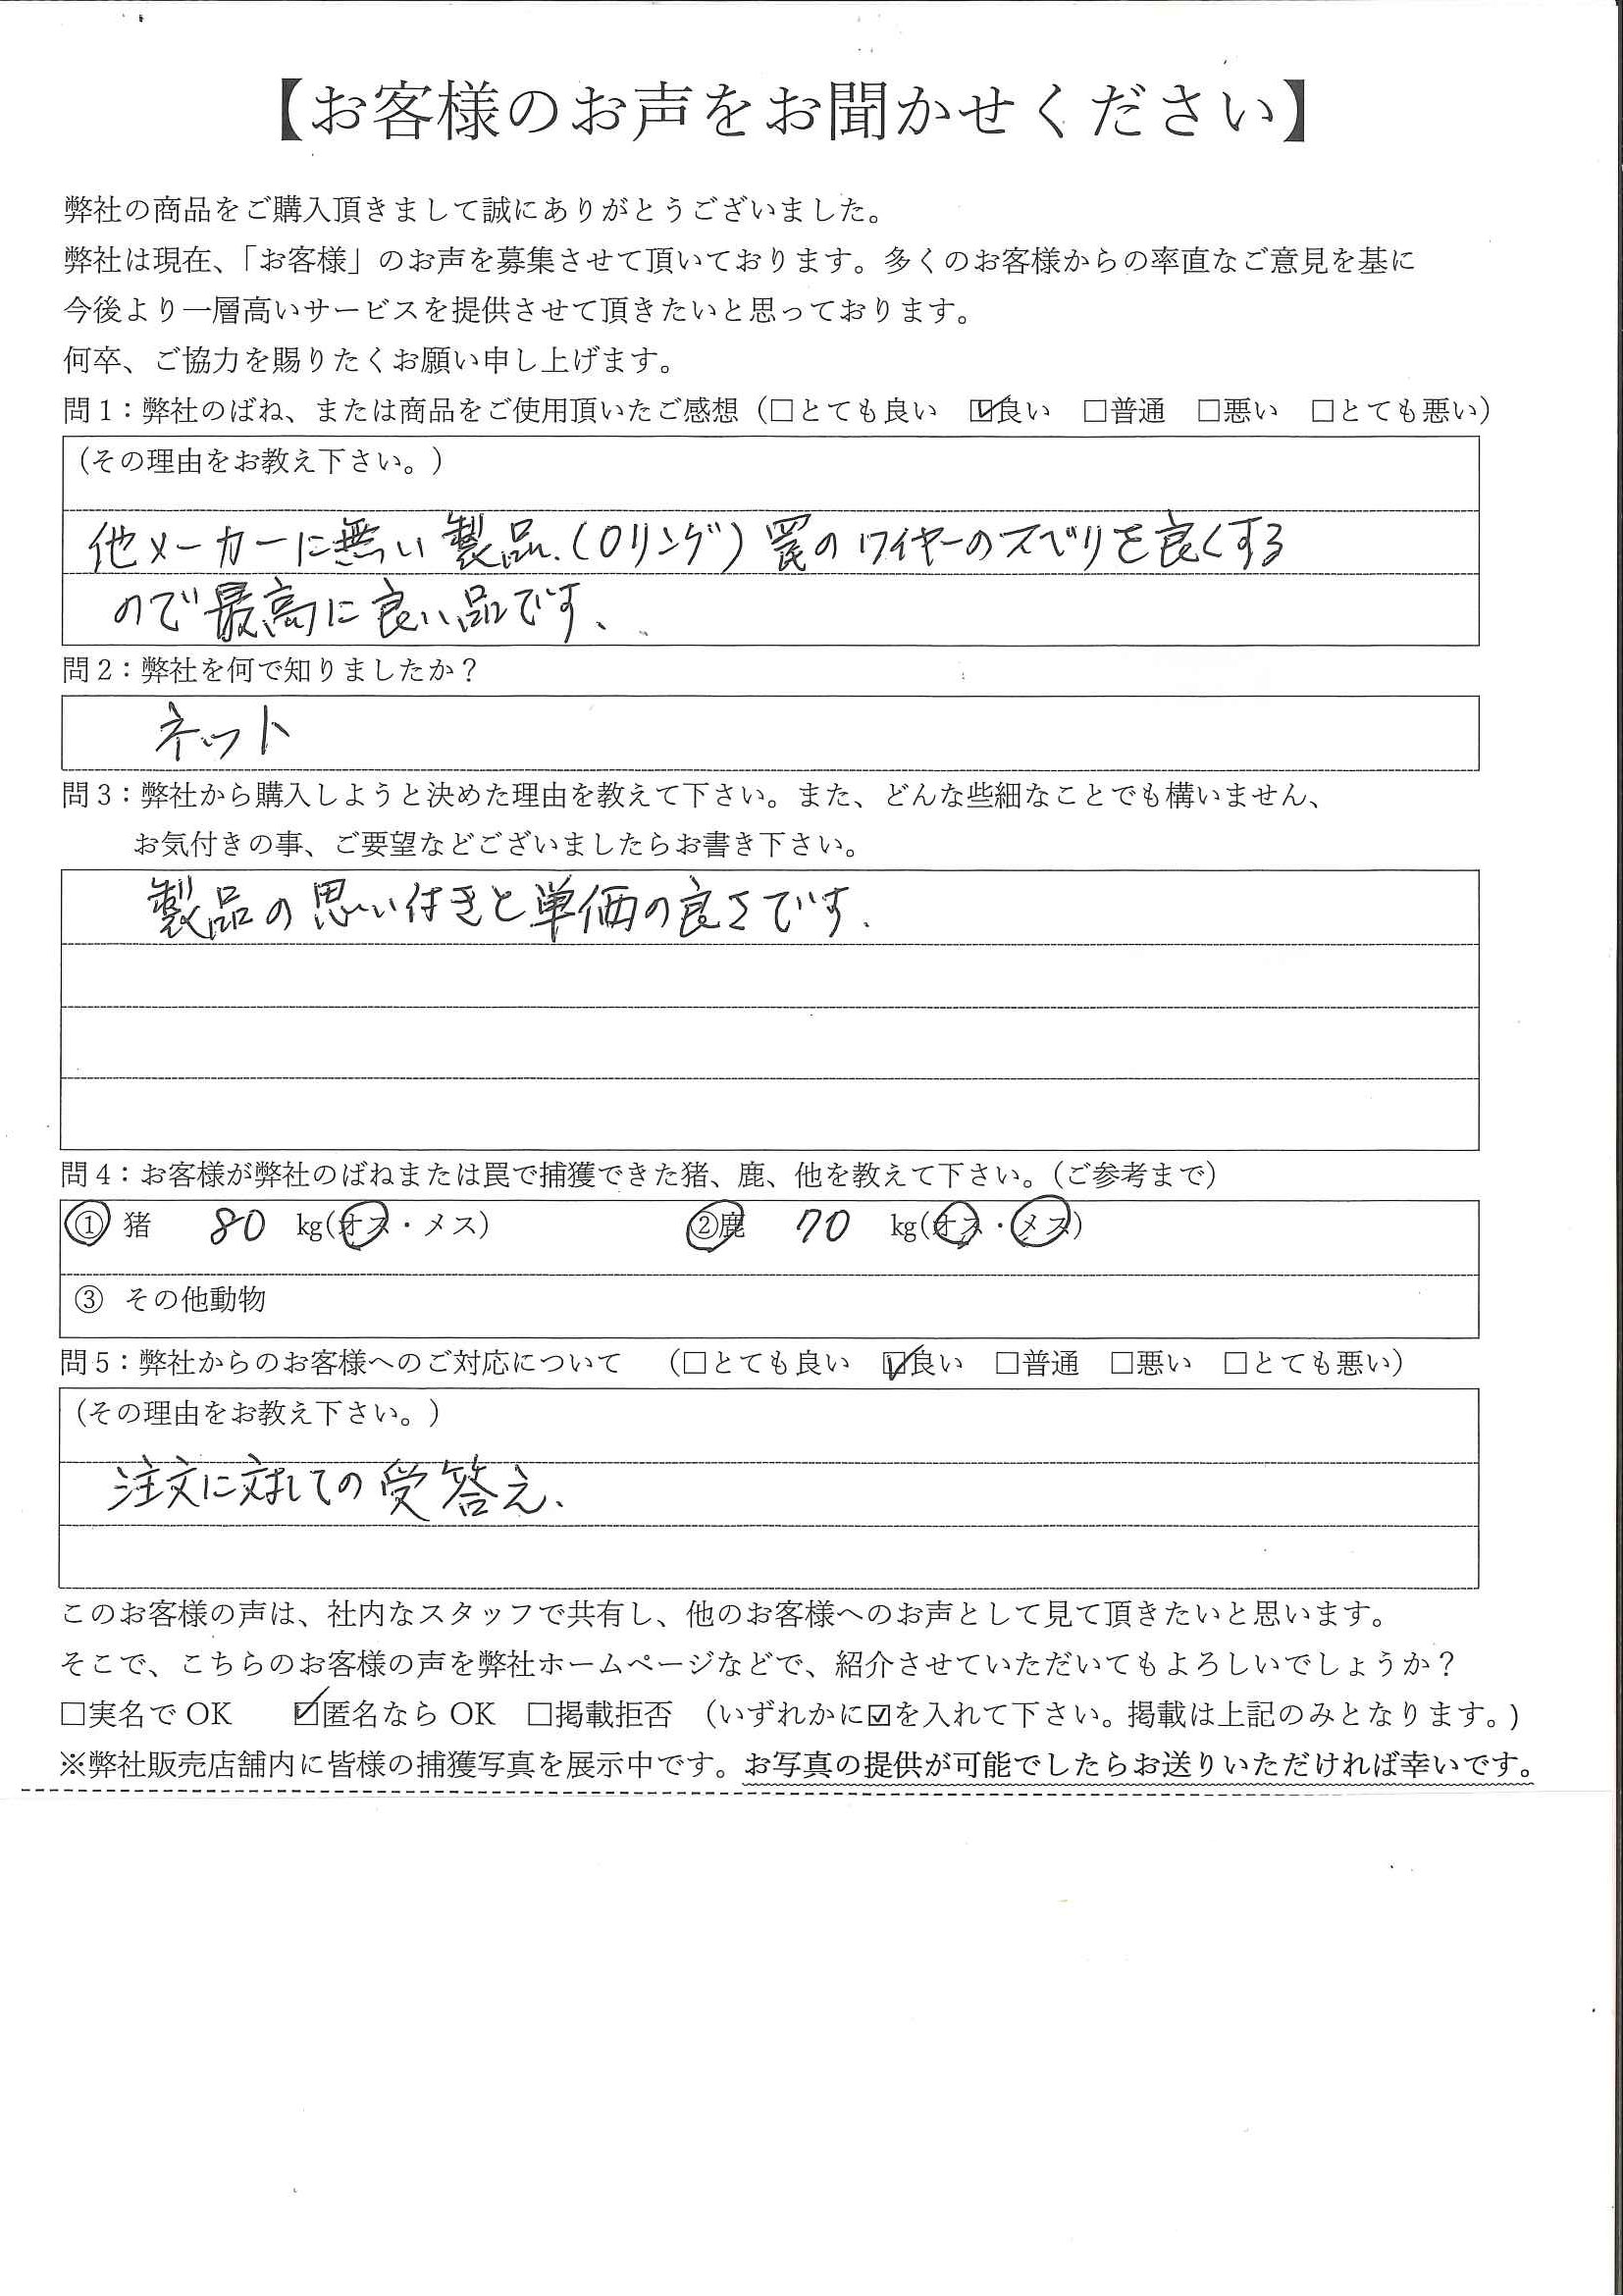 【お客様のお声をお聞かせください】
弊社の商品をご購入頂きまして誠にありがとうございました。
弊社は現在、「お客様」のお声を募集させて頂いております。多くのお客様からの率直なご意見を基に
今後より一層高いサービスを提供させて頂きたいと思っております。
何卒、ご協力を賜りたくお願い申し上げます。
問1：弊社のばね、または商品をご使用頂いたご感想（□とても良い ☑良い □普通 □悪い □とても悪い）
（その理由をお教え下さい。）
他メーカーに無い製品.(Oリング)罠のワイヤーのスベリを良くする
ので最高に良い品です、
問2：弊社を何で知りましたか？
ネット
問3：弊社から購入しようと決めた理由を教えて下さい。また、どんな些細なことでも構いません、
お気付きの事、ご要望などございましたらお書き下さい。
製品の思い付きと単価の良さです.
問4：お客様が弊社のばねまたは罠で捕獲できた猪、鹿、他を教えて下さい。（ご参考まで）
① 猪 80 kg(オス・メス) ②鹿 70 kg(オス・メス)
③ その他動物
問5：弊社からのお客様へのご対応について （□とても良い ☑良い □普通 □悪い □とても悪い）
（その理由をお教え下さい。）
注文に対しての受答え、
このお客様の声は、社内なスタッフで共有し、他のお客様へのお声として見て頂きたいと思います。
そこで、こちらのお客様の声を弊社ホームページなどで、紹介させていただいてもよろしいでしょうか？
□実名でOK ☑匿名ならOK □掲載拒否 （いずれかに☑を入れて下さい。掲載は上記のみとなります。）
※弊社販売店舗内に皆様の捕獲写真を展示中です。お写真の提供が可能でしたらお送りいただければ幸いです。